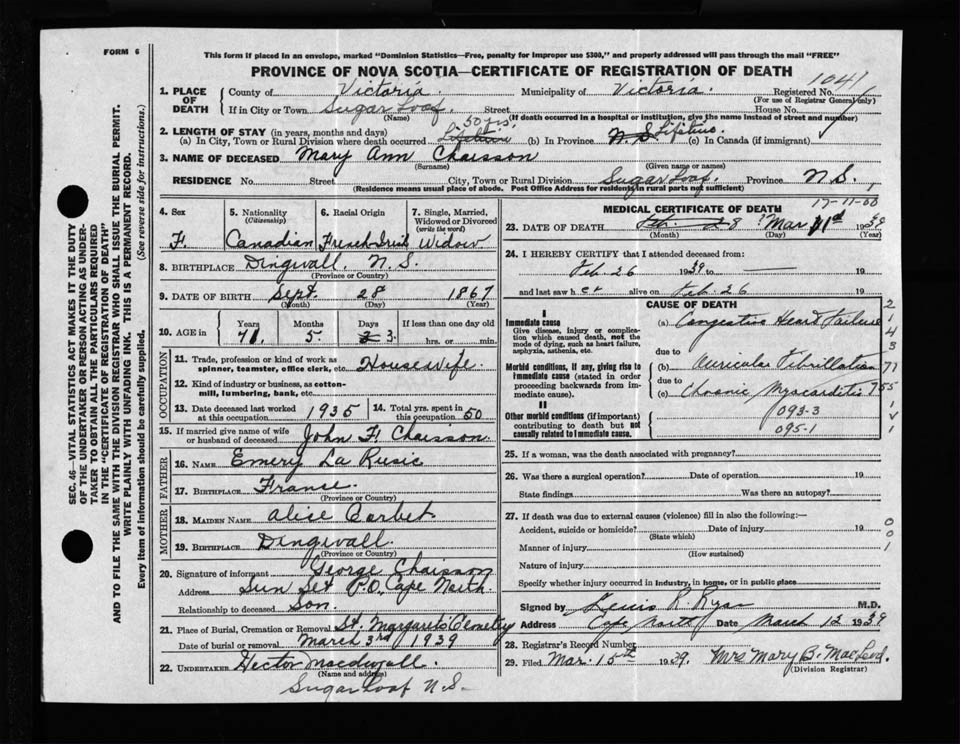 FORM 6
This form if placed in an envelope, marked "Dominion Statistics—Free, penalty for improper use $300," and properly addressed will pass through the mail "FREE"
PROVINCE OF NOVA SCOTIA—CERTIFICATE OF REGISTRATION OF DEATH
1041
1. PLACE OF DEATH County of Victoria. Municipality of Victoria. Registered No.
(For use of Registrar General only)
If in City or Town Sugar Loaf. Street House No.
(Name) (If death occurred in a hospital or institution, give the name instead of street and number)
2. LENGTH OF STAY (in years, months and days) 50 yrs.
(a) In City, Town or Rural Division where death occurred Lifetime (b) In Province N.S. Lifetime. (c) In Canada (if immigrant)
3. NAME OF DECEASED Mary Ann Chaisson
(Surname) (Given name or names)
RESIDENCE No. Street City, Town or Rural Division Sugar Loaf. Province N.S.
(Residence means usual place of abode. Post Office Address for residents in rural parts not sufficient)
4. Sex F. 5. Nationality (Citizenship) Canadian 6. Racial Origin French-Irish 7. Single, Married, Widowed or Divorced (write the word) Widow
8. BIRTHPLACE Dingwall. N.S.
(Province or Country)
9. DATE OF BIRTH Sept. 28 1867
(Month) (Day) (Year)
10. AGE in Years 71. Months 5. Days 3. If less than one day old hrs. or min.
OCCUPATION
11. Trade, profession or kind of work as spinner, teamster, office clerk, etc. Housewife.
12. Kind of industry or business, as cotton-mill, lumbering, bank, etc.
13. Date deceased last worked at this occupation 1935 14. Total yrs. spent in this occupation 50
15. If married give name of wife or husband of deceased John F. Chaisson.
FATHER
16. NAME Emery La Rusic
17. BIRTHPLACE France.
(Province or Country)
MOTHER
18. MAIDEN NAME Alice Corbet
19. BIRTHPLACE Dingwall.
(Province or Country)
20. Signature of informant George Chaisson
Address Sun Set P.O. Cape North
Relationship to deceased Son.
21. Place of Burial, Cremation or Removal St. Margaret's Cemetery
Date of burial or removal March 3rd 1939
22. UNDERTAKER Hector Macdougall.
(Name and address)
Sugar Loaf N.S.
MEDICAL CERTIFICATE OF DEATH
23. DATE OF DEATH Feb 28 Mar 1st 1939
(Month) (Day) (Year)
24. I HEREBY CERTIFY that I attended deceased from:
Feb. 26 1939 to — 19
and last saw her alive on Feb. 26 19
CAUSE OF DEATH
I
Immediate cause
Give disease, injury or complication which caused death, not the mode of dying, such as heart failure, asphyxia, asthenia, etc.
(a) Congestive Heart Failure
due to
Morbid conditions, if any, giving rise to immediate cause (stated in order proceeding backwards from immediate cause).
(b) Auricular Fibrillation
due to
(c) Chronic Myocarditis
II
Other morbid conditions (if important) contributing to death but not causally related to immediate cause.
093-3
095-1
25. If a woman, was the death associated with pregnancy?
26. Was there a surgical operation? Date of operation 19
State findings Was there an autopsy?
27. If death was due to external causes (violence) fill in also the following:—
Accident, suicide or homicide? Date of injury 19
(State which)
Manner of injury
(How sustained)
Nature of injury
Specify whether injury occurred in industry, in home, or in public place
Signed by Lewis R. Ryan M.D.
Address Cape North Date March 12 1939
28. Registrar's Record Number
29. Filed Mar. 15th 1939. Mrs Mary B. MacLeod.
(Division Registrar)
SEC. 46—VITAL STATISTICS ACT MAKES IT THE DUTY
OF THE UNDERTAKER OR PERSON ACTING AS UNDER-
TAKER TO OBTAIN ALL THE PARTICULARS REQUIRED
IN THE "CERTIFICATE OF REGISTRATION OF DEATH"
AND TO FILE THE SAME WITH THE DIVISION REGISTRAR WHO SHALL ISSUE THE BURIAL PERMIT.
WRITE PLAINLY WITH UNFADING INK. THIS IS A PERMANENT RECORD.
Every item of information should be carefully supplied. (See reverse side for instructions.)